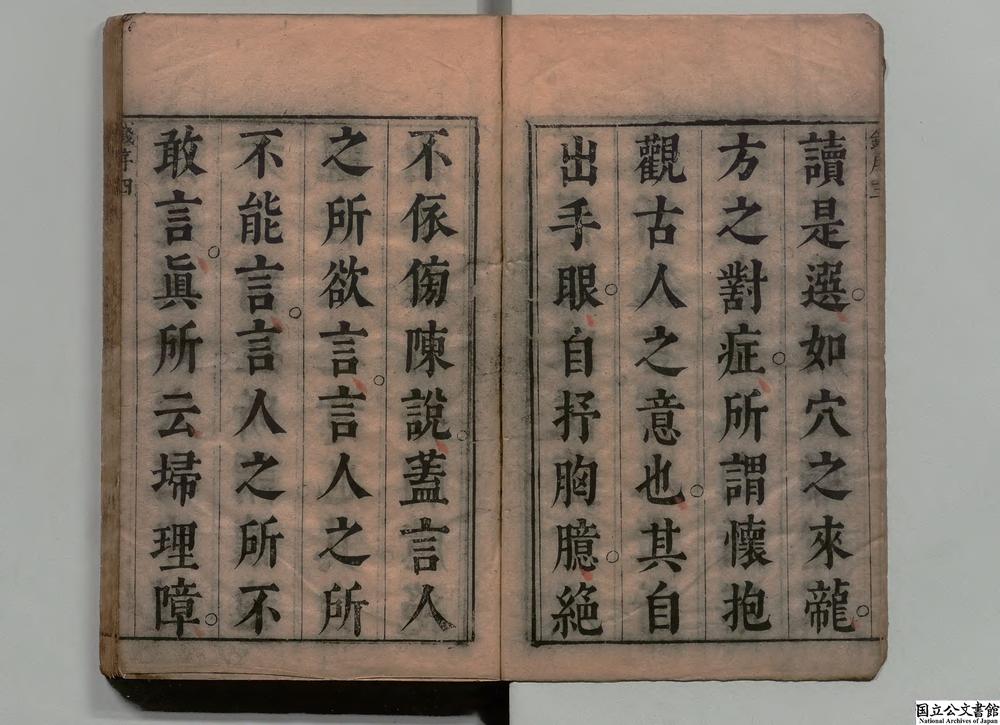 讀是選。如穴之來龍。
方之對症。所謂懷抱
觀古人之意也。其自
出手眼。自抒胸臆。絕
不依傍陳說。蓋言人
之所欲言。言人之所
不能言。言人之所不
敢言。眞所云埽理障。
錢序四
国立公文書館
National Archives of Japan